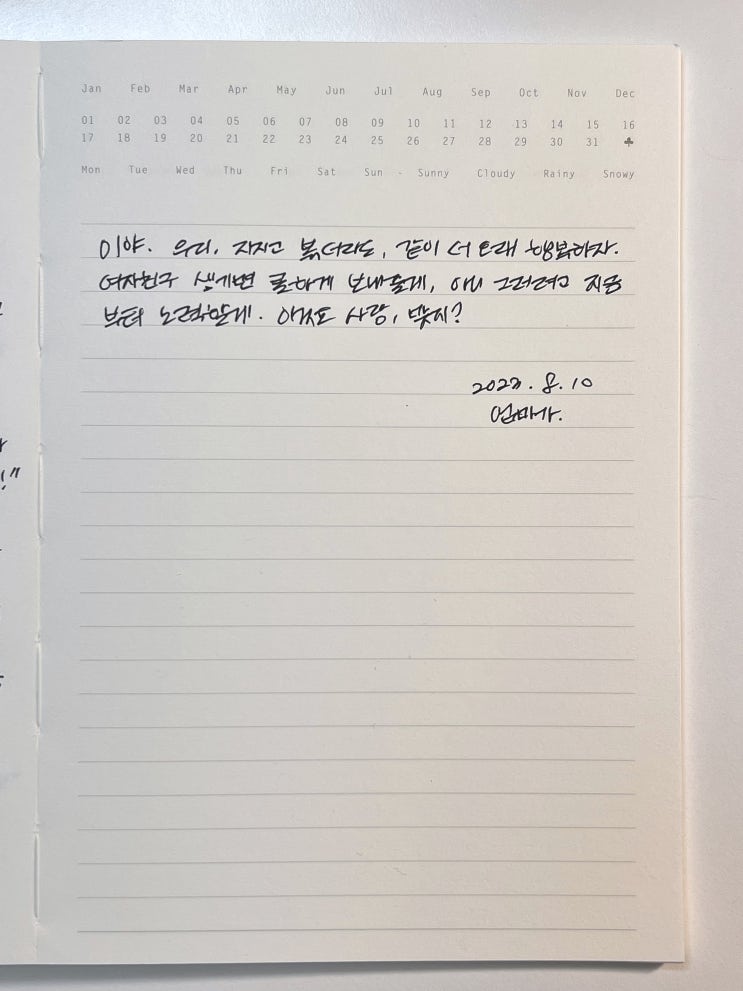 Jan Feb Mar Apr May Jun Jul Aug Sep Oct Nov Dec
01 02 03 04 05 06 07 08 09 10 11 12 13 14 15 16
17 18 19 20 21 22 23 24 25 26 27 28 29 30 31
Mon Tue Wed Thu Fri Sat Sun - Sunny Cloudy Rainy Snowy
이야. 우리, 지지고 볶더라도, 같이 더 오래 행복하자.
여자친구 생기면 쿨하게 보내줄게, 아니 그러려고 지금
부터 노력할게. 애니도 사랑, 맞지?
!"
2022. 8. 10
엄마가.